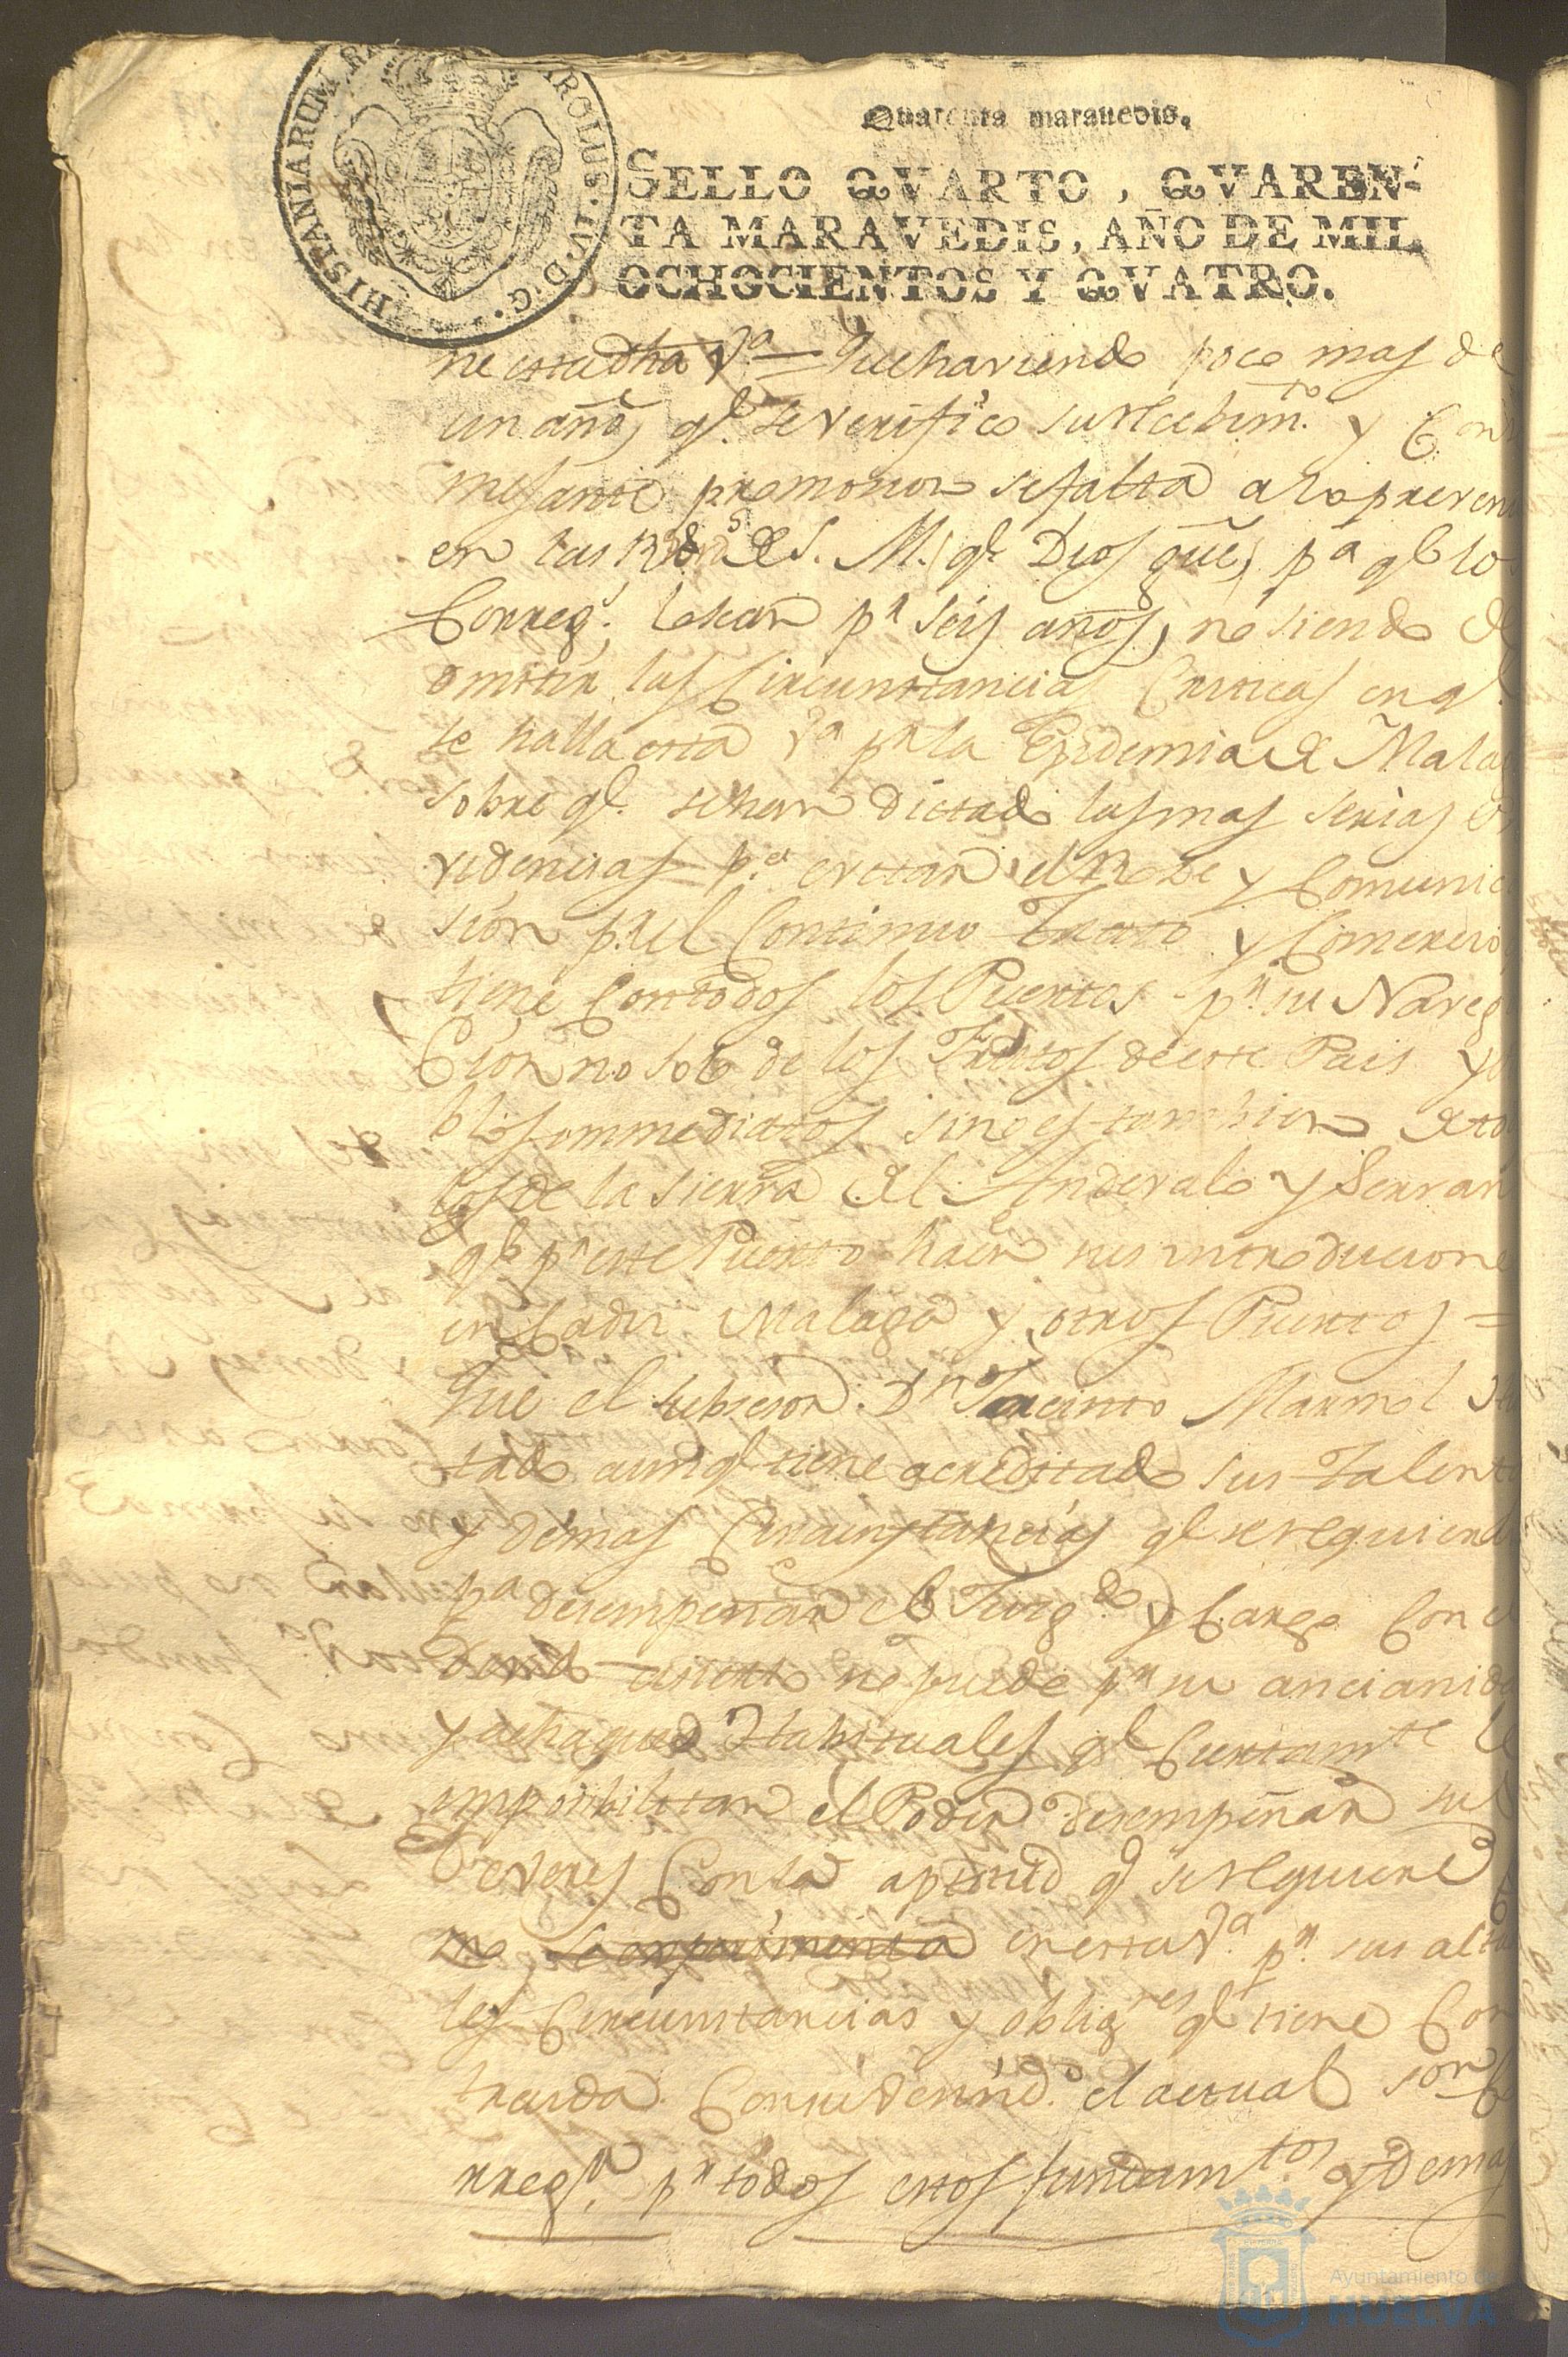 HISPANIARUM CAROLUS. IV. D. G.
Quarenta maravedis.
SELLO QVARTO, QVAREN-
TA MARAVEDIS, AÑO DE MIL
OCHOCIENTOS Y QVATRO.
ne esta dha Va = Que haviendo poco mas de
un año, qe. se verifico su recebimto. y con
mejante promocion se falta a lo preveni
en las Rs de S. M. (qe. Dios gue) pa qe lo
Correg. lo sean pr seis años, no siendo de
omitir las Circunstancias Criticas en qe.
se halla esta Va pr la Epidemia de Mala
sobre qe. se han dictado las mas serias
videncias pa. evitar el Roze y Comunic
sion pr el Continuo Trato y Comercio
tiene con todos los Puertos pr. su Naveg
cion no solo de los Frutos de este Pais y
blos ymmediatos sino es tambien de to
los de la Sierra del Andevalo y Serran
qe pr este Puerto hacen sus introducione
en Cadiz Malaga y otros Puertos =
Que el subcesor Dn Jacinto Marmol
tado aunqe tiene acreditado sus Talent
y demas Circunstancias qe se requieren
pa desempeñar el Juzgdo. y Cargo Con el
asierto no puede pr su ancianida
y achaques Habituales qe Ciertamte le
imposibilitan el Poder desempeñar sus
Deveres Con la aptitud qe se requiere
me se experimenta en esta Va. pr. sus alta
les Circunstancias y obligres qe tiene Con
traida Considerando. el actual sor
rregr. pr todos estos fundamtos. y demas
Ayuntamiento de
HUELVA